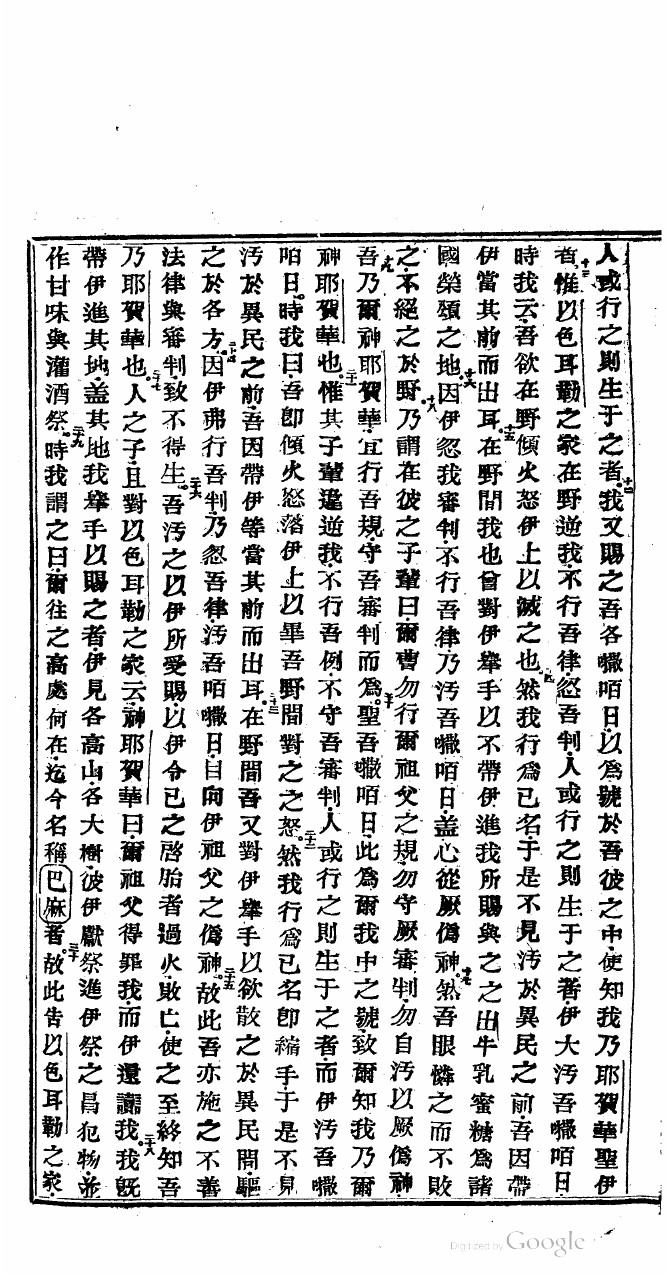 人或行之則生于之者十二我又賜之吾各嚫咟日以爲號於吾彼之中使知我乃耶賀華聖伊
者十三惟以色耳勒之家在野逆我不行吾律忽吾判人或行之則生于之者伊大汚吾嚫咟日
時我云吾欲在野傾火怒伊上以滅之也十四然我行爲已名于是不見汚於異民之前吾因帶
伊當其前而出耳十五在野間我也曾對伊舉手以不帶伊進我所賜與之之出牛乳蜜糖爲諸
國榮頌之地十六因伊忽我審判不行吾律乃汚吾嚫咟日蓋心從厥僞神十七然吾眼憐之而不敗
之不絕之於野十八乃謂在彼之子輩曰爾曹勿行爾祖父之規勿守厥審判勿自汚以厥僞神
十九吾乃爾神耶賀華宜行吾規守吾審判而爲二十聖吾嚫咟日此爲爾我中之號致爾知我乃爾
神耶賀華也二十一惟其子輩違逆我不行吾例不守吾審判人或行之則生于之者而伊汚吾嚫
咟日時我曰吾卽傾火怒落伊上以畢吾野間對之之怒二十二然我行爲已名卽縮手于是不見
汚於異民之前吾因帶伊等當其前而出耳二十三在野間吾又對伊舉手以欲散之於異民間驅
之於各方二十四因伊弗行吾判乃忽吾律汚吾咟嚫日目向伊祖父之僞神二十五故此吾亦施之不善
法律與審判致不得生二十六吾汚之以伊所受賜以伊令已之啓胎者過火敗亡使之至終知吾
乃耶賀華也二十七人之子且對以色耳勒之家云神耶賀華曰爾祖父得罪我而伊還讟我二十八我旣
帶伊進其地蓋其地我舉手以賜之者伊見各高山各大樹彼伊獻祭進伊祭之冒犯物並
作甘味與灌酒祭二十九時我謂之曰爾往之高處何在迄今名稱巴麻者三十故此告以色耳勒之家
Digitized by Google